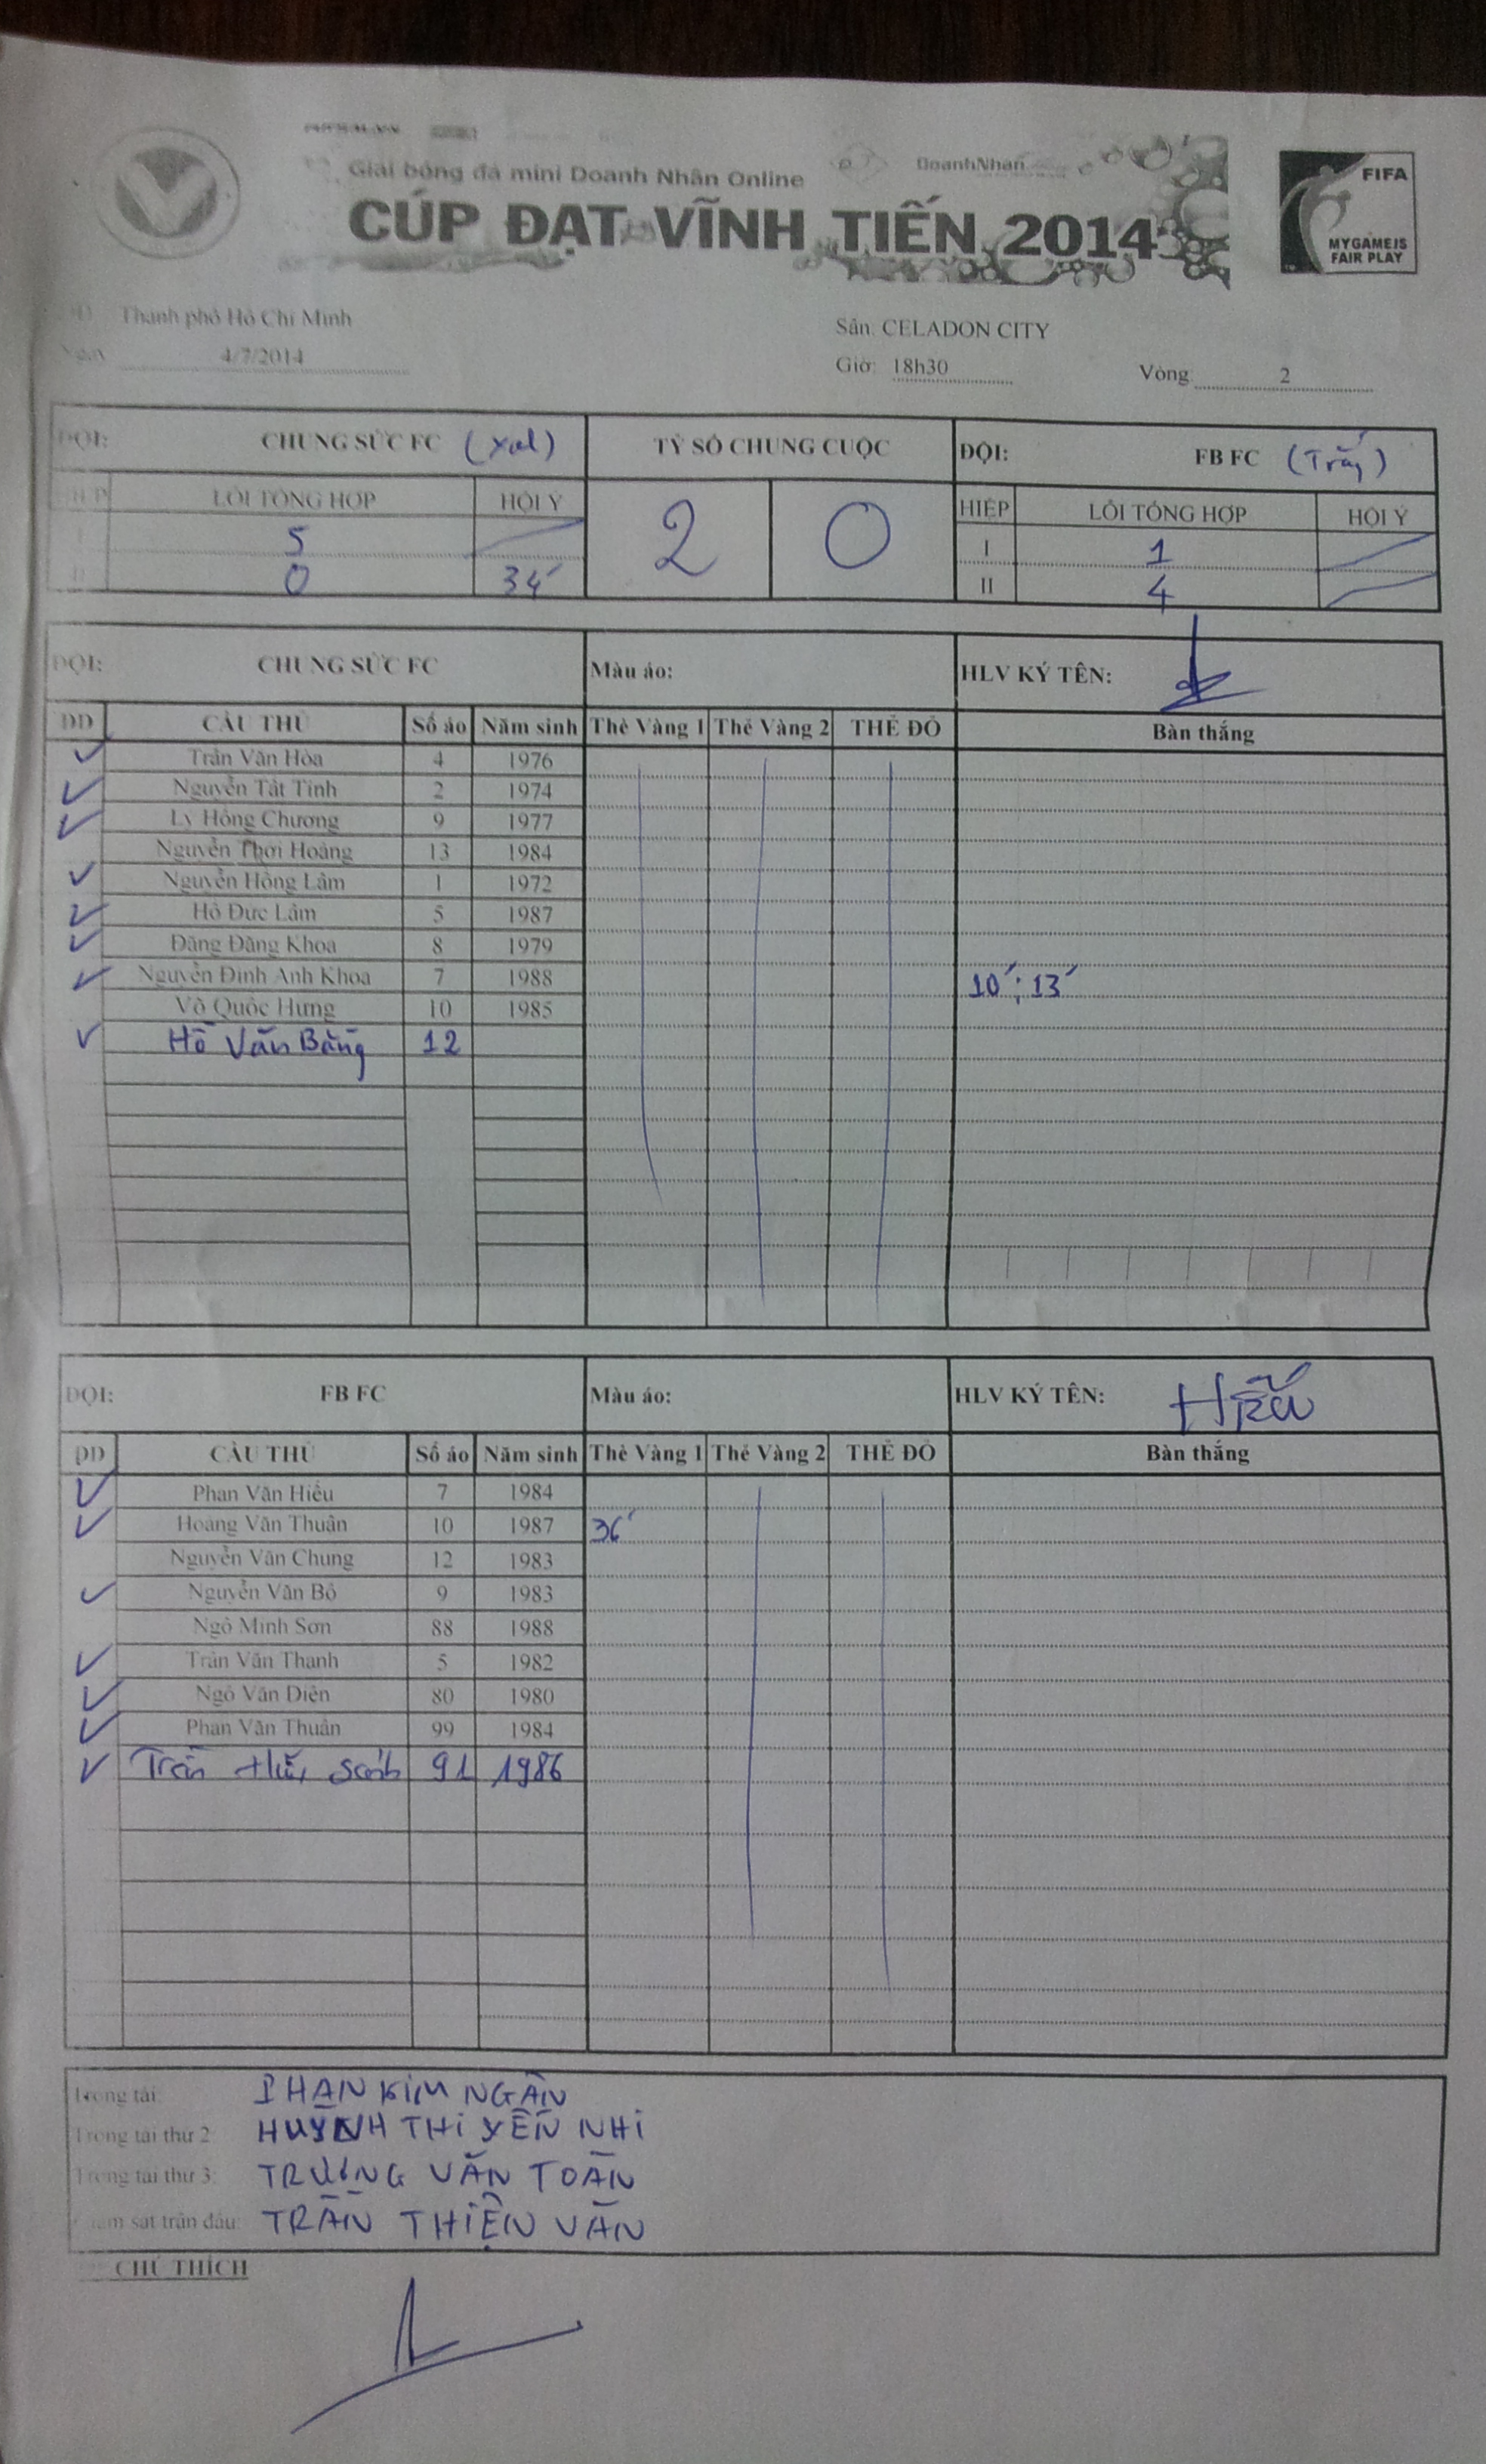 Giải bóng đá mini Doanh Nhân Online
DoanhNhân
CÚP ĐẠT VĨNH TIẾN 2014
FIFA
MY GAME IS
FAIR PLAY
Thành phố Hồ Chí Minh
Sân: CELADON CITY
Ngày 4/7/2014
Giờ: 18h30 Vòng 2
ĐỘI: CHUNG SỨC FC TỶ SỐ CHUNG CUỘC ĐỘI: FB FC (Trắng)
HIỆP LỖI TỔNG HỢP HỘI Ý 2 0 HIỆP LỖI TỔNG HỢP HỘI Ý
I 5 I 1
II 0 34' II 4
ĐỘI: CHUNG SỨC FC Màu áo: HLV KÝ TÊN:
DD CẦU THỦ Số áo Năm sinh Thẻ Vàng 1 Thẻ Vàng 2 THẺ ĐỎ Bàn thắng
Trần Văn Hòa 4 1976
Nguyễn Tất Tình 2 1974
Lý Hồng Chương 9 1977
Nguyễn Thới Hoàng 13 1984
Nguyễn Hồng Lâm 1 1972
Hồ Đức Lâm 5 1987
Đặng Đăng Khoa 8 1979
Nguyễn Đình Anh Khoa 7 1988 10'; 13'
Võ Quốc Hưng 10 1985
Hồ Văn Bằng 12
ĐỘI: FB FC Màu áo: HLV KÝ TÊN: Hiếu
DD CẦU THỦ Số áo Năm sinh Thẻ Vàng 1 Thẻ Vàng 2 THẺ ĐỎ Bàn thắng
Phan Văn Hiếu 7 1984
Hoàng Văn Thuận 10 1987 36'
Nguyễn Văn Chung 12 1983
Nguyễn Văn Bộ 9 1983
Ngô Minh Sơn 88 1988
Trần Văn Thanh 5 1982
Ngô Văn Diễn 80 1980
Phan Văn Thuân 99 1984
Trần 91 1986
Trọng tài: PHAN KIM NGÂN
Trọng tài thứ 2: HUỲNH THỊ YẾN NHI
Trọng tài thứ 3: TRƯƠNG VĂN TOÀN
Giám sát trận đấu: TRẦN THIỆN VĂN
CHÚ THÍCH